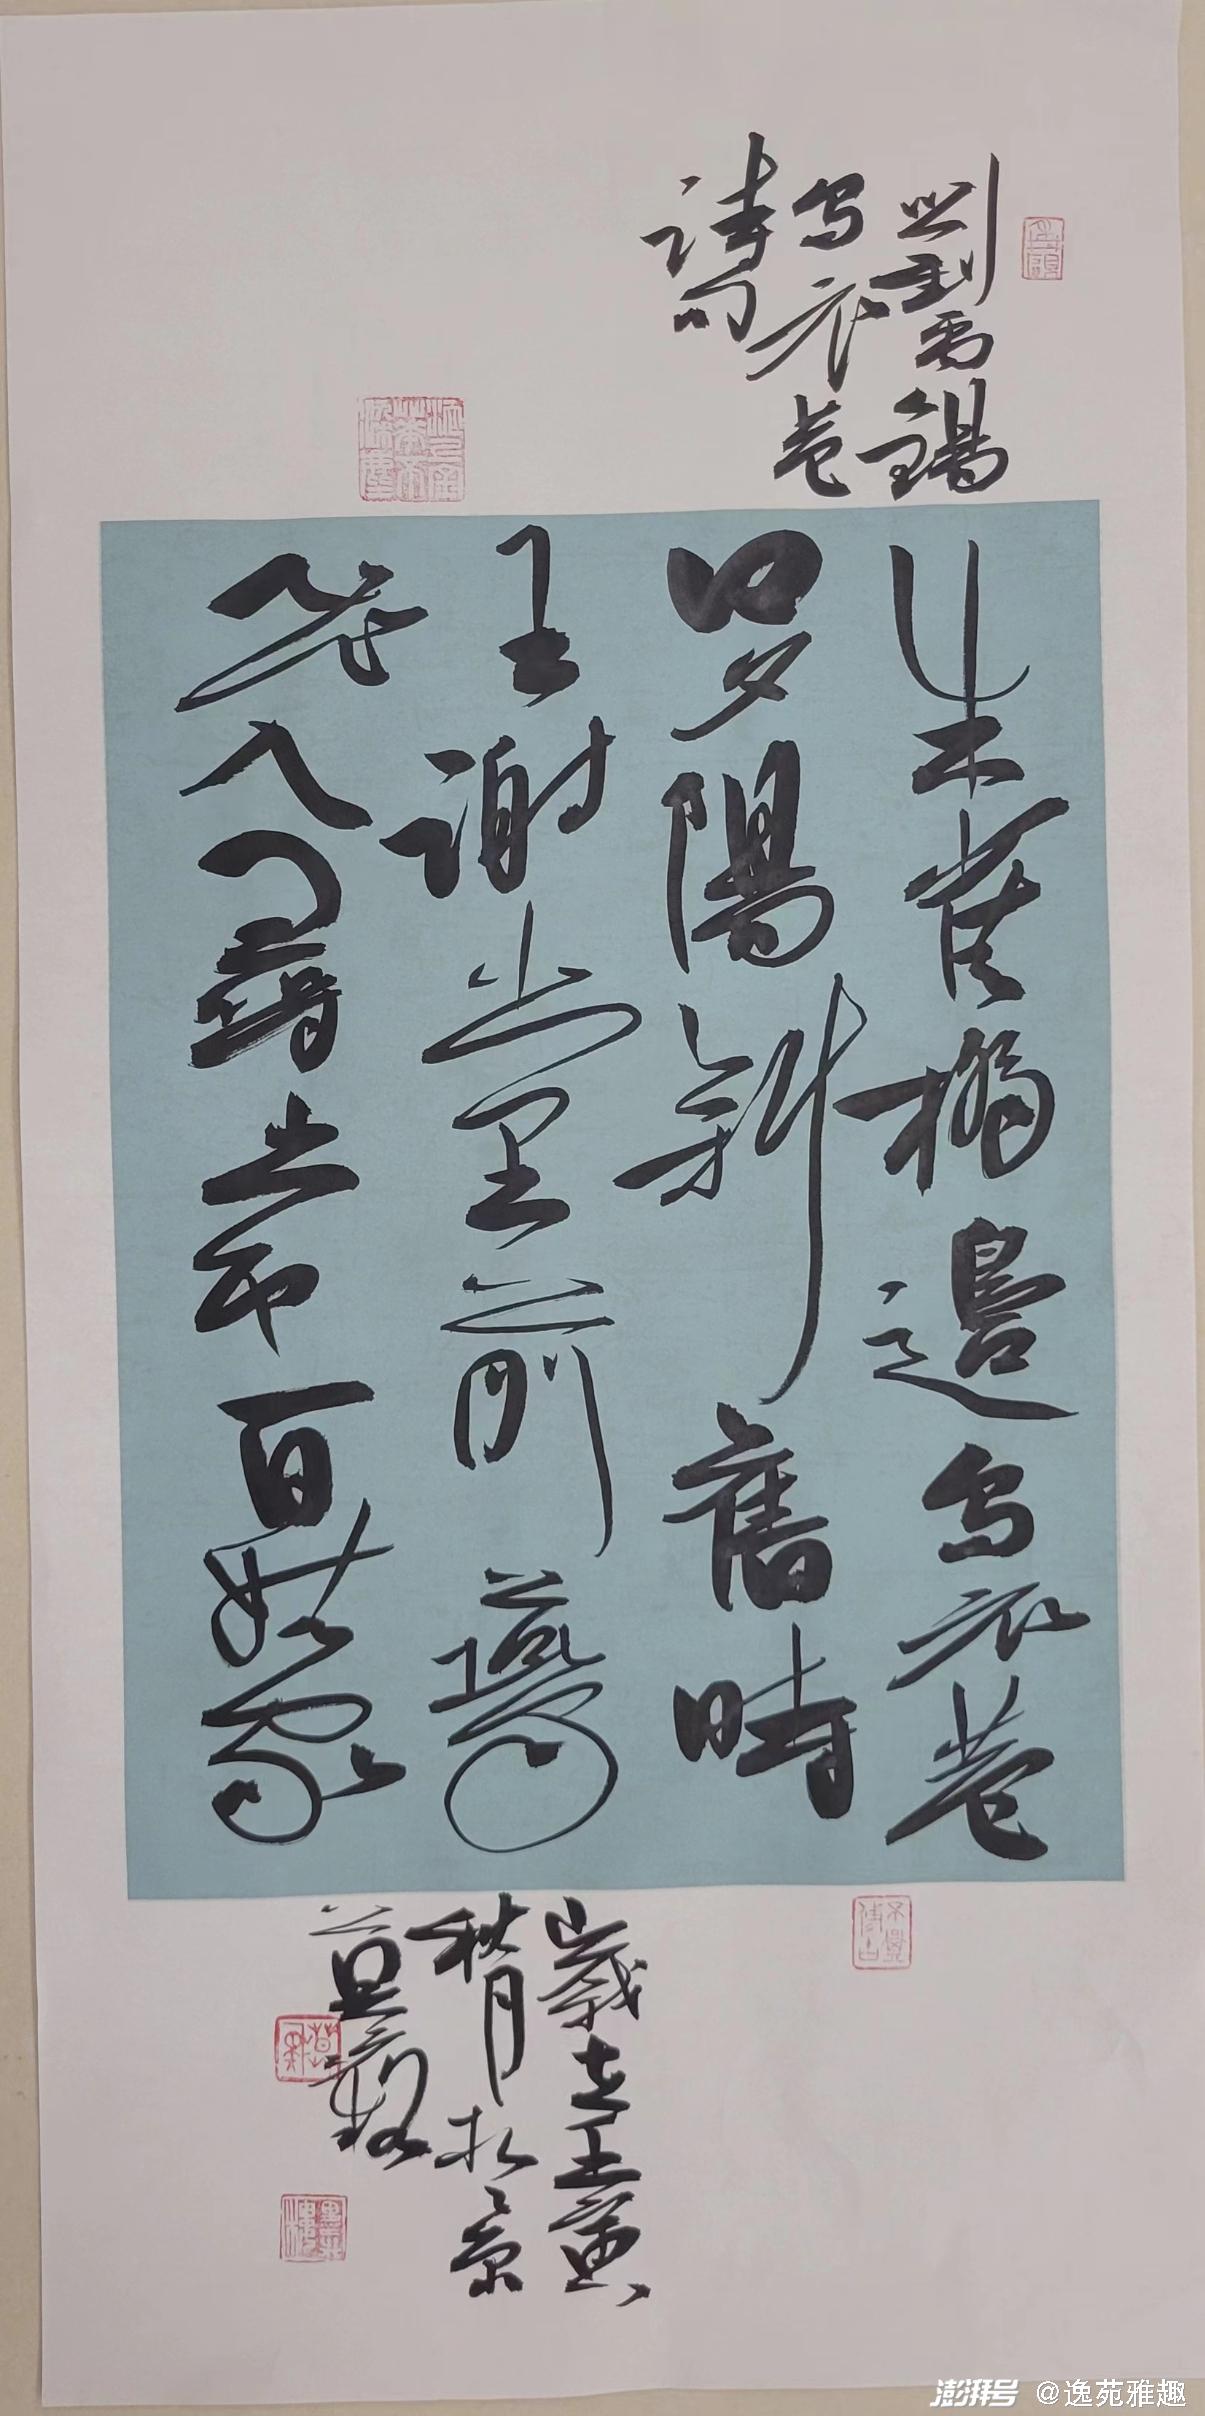 劉禹錫
烏衣巷
詩
朱雀橋邊烏衣巷
口夕陽斜舊時
王謝堂前燕
飛入尋常百姓家
歲在壬寅
秋月於京
澎湃号 @逸苑雅趣